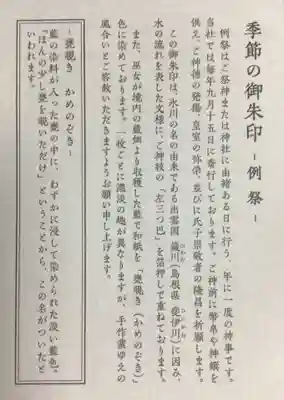 季節の御朱印 - 例祭 -
例祭はご祭神または神社に由緒ある日に行う、年に一度の神事です。
当社では毎年九月十五日に斎行しております。ご神前に幣帛や神饌を
供え、ご神徳の発揚、皇室の弥栄、並びに氏子崇敬者の隆昌を祈願します。
この御朱印は、氷川の名の由来である出雲國 簸川(島根県 斐伊川)に因み、
ひかわ
ひいかわ
水の流れを表した文様に、ご神紋の「左三つ巴」を箔押しで重ねております。
また、巫女が境内の藍畑より収穫した藍で和紙を「甕覗き(かめのぞき)」
色に染めております。一枚ごとに濃淡の趣が異なりますが、手作業ゆえの
風合いとご容赦いただきますようお願い申し上げます。
- 甕覗き かめのぞき -
藍の染料が入った甕の中に、わずかに浸して染められた淡い藍色。
「ほんの少し甕を覗いただけ」ということから、この名がついたと
いわれます。